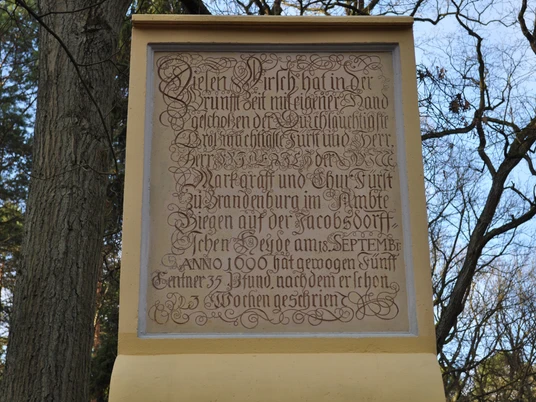 Diesen Hirsch hat in der
Brunfft Zeit mit eigener Hand
geschoßen der Durchlauchtigste
Großmächtigste Fürst und Herr,
Herr der
Marckgraff und Chur Fürst
zu Brandenburg im Ambte
Biegen auf der Jacobsdorff-
schen Heyde am 18 SEPTEMBr
ANNO 1696 hat gewogen Fünff
Centner 35 Pfund, nachdem er schon
Wochen geschrien